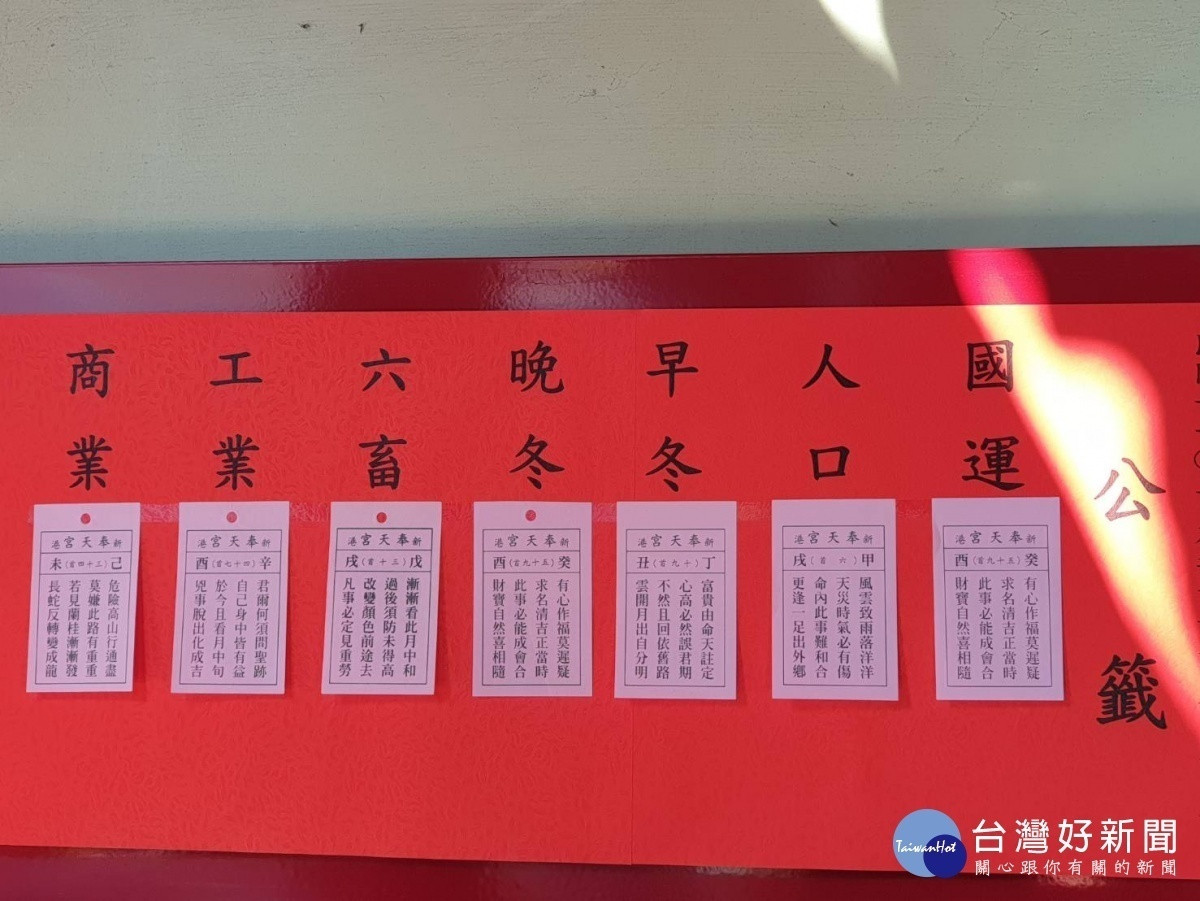 公籤
國運
新奉天宮港
癸(五十九首)酉
有心作福莫遲疑
求名清吉正當時
此事必能成會合
財寶自然喜相隨
人口
新奉天宮港
甲(六首)戌
風雲致雨落洋洋
天災時氣必有傷
命內此事難和合
更逢一足出外鄉
早冬
新奉天宮港
丁(十九首)丑
富貴由命天註定
心高必然誤君期
不然且回依舊路
雲開月出自分明
晚冬
新奉天宮港
癸(五十九首)酉
有心作福莫遲疑
求名清吉正當時
此事必能成會合
財寶自然喜相隨
六畜
新奉天宮港
戊(三十首)戌
漸漸看此月中和
過後須防未得高
改變顏色前途去
凡事必定見重勞
工業
新奉天宮港
辛(四十七首)酉
君爾何須問聖跡
自己身中皆有益
於今且看月中旬
兇事脫出化成吉
商業
新奉天宮港
己(三十四首)未
危險高山行過盡
莫嫌此路有重重
若見蘭桂漸漸發
長蛇反轉變成龍
TaiwanHot
台灣好新聞
關心跟你有關的新聞